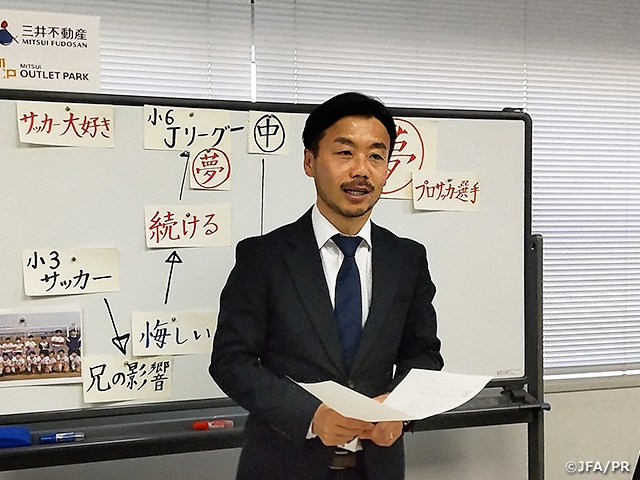 三井不動産
MITSUI FUDOSAN
MITSUI
OUTLET PARK
サッカー大好き
小6
Jリーグー
中
夢
夢
プロサッカー選手
続ける
小3
サッカー
悔しい
兄の影響
©JFA/PR